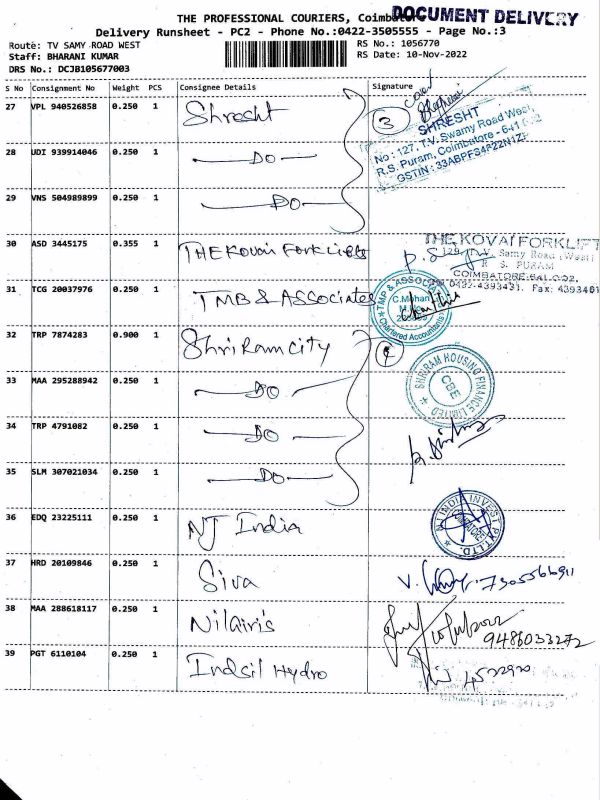 THE PROFESSIONAL COURIERS, Coimbatore
DOCUMENT DELIVERY
Delivery Runsheet - PC2 - Phone No.:0422-3505555 - Page No.:3
Route: TV SAMY ROAD WEST
RS No.: 1056770
Staff: BHARANI KUMAR
RS Date: 10-Nov-2022
DRS No.: DCJB105677003
S No Consignment No Weight PCS Consignee Details Signature
27 VPL 940526858 0.250 1 Shresht
3
SHRESHT
No : 127, T.V. Swamy Road West,
R.S. Puram, Coimbatore - 641 002
GSTIN : 33ABPFS4822N1ZF
28 UDI 939914046 0.250 1 DO
29 VNS 504989899 0.250 1 DO
30 ASD 3445175 0.355 1 THE KOVAI FORKLIFTS
THE KOVAI FORKLIFT
129, T.V. Samy Road (West)
R S. PURAM
COIMBATORE-641 002.
0422-4393431. Fax: 4393461
31 TCG 20037976 0.250 1 TMB & ASSOCIATES
TMP & ASSOCIATES
C.Mohan
Chartered Accountants
32 TRP 7874283 0.900 1 Shriram City
4
SHRIRAM HOUSING FINANCE LIMITED
CBE
33 MAA 295288942 0.250 1 DO
34 TRP 4791082 0.250 1 DO
35 SLM 307021034 0.250 1 DO
36 EDQ 23225111 0.250 1 NJ India
NJ INDIA INVEST PVT LTD.
37 HRD 20109846 0.250 1 Siva
7305566911
38 MAA 288618117 0.250 1 Nilairis
9486033272
39 PGT 6110104 0.250 1 Indsil Hydro
4522920